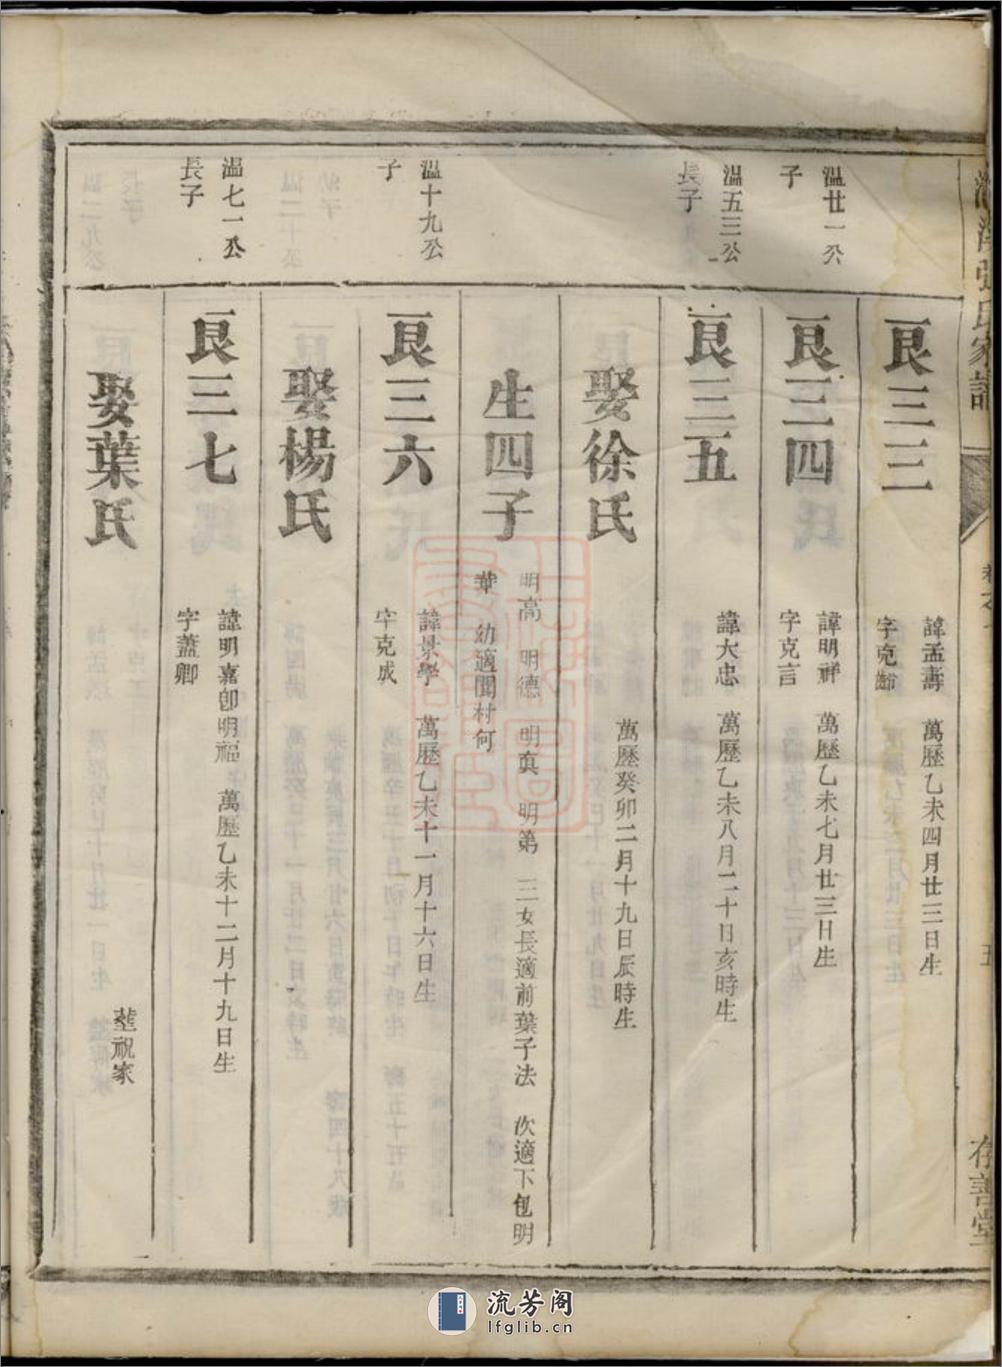 張氏家譜
存善堂
良三三
諱孟壽 萬歷乙未四月廿三日生
字克齡
溫廿一公
子
良三四
諱明祥 萬歷乙未七月廿三日生
字克言
溫五三公
長子
良三五
諱大忠 萬歷乙未八月二十日亥時生
娶徐氏
萬歷癸卯二月十九日辰時生
生四子
明高 明德 明真 明第 三女長適前葉子法 次適下包明
華 幼適聞村何
溫十九公
子
良三六
諱景學 萬歷乙未十一月十六日生
字克成
娶楊氏
溫七一公
長子
良三七
諱明嘉卽明福 萬歷乙未十二月十九日生
字蓋卿
娶葉氏
塟祝家
流芳阁
lfglib.cn